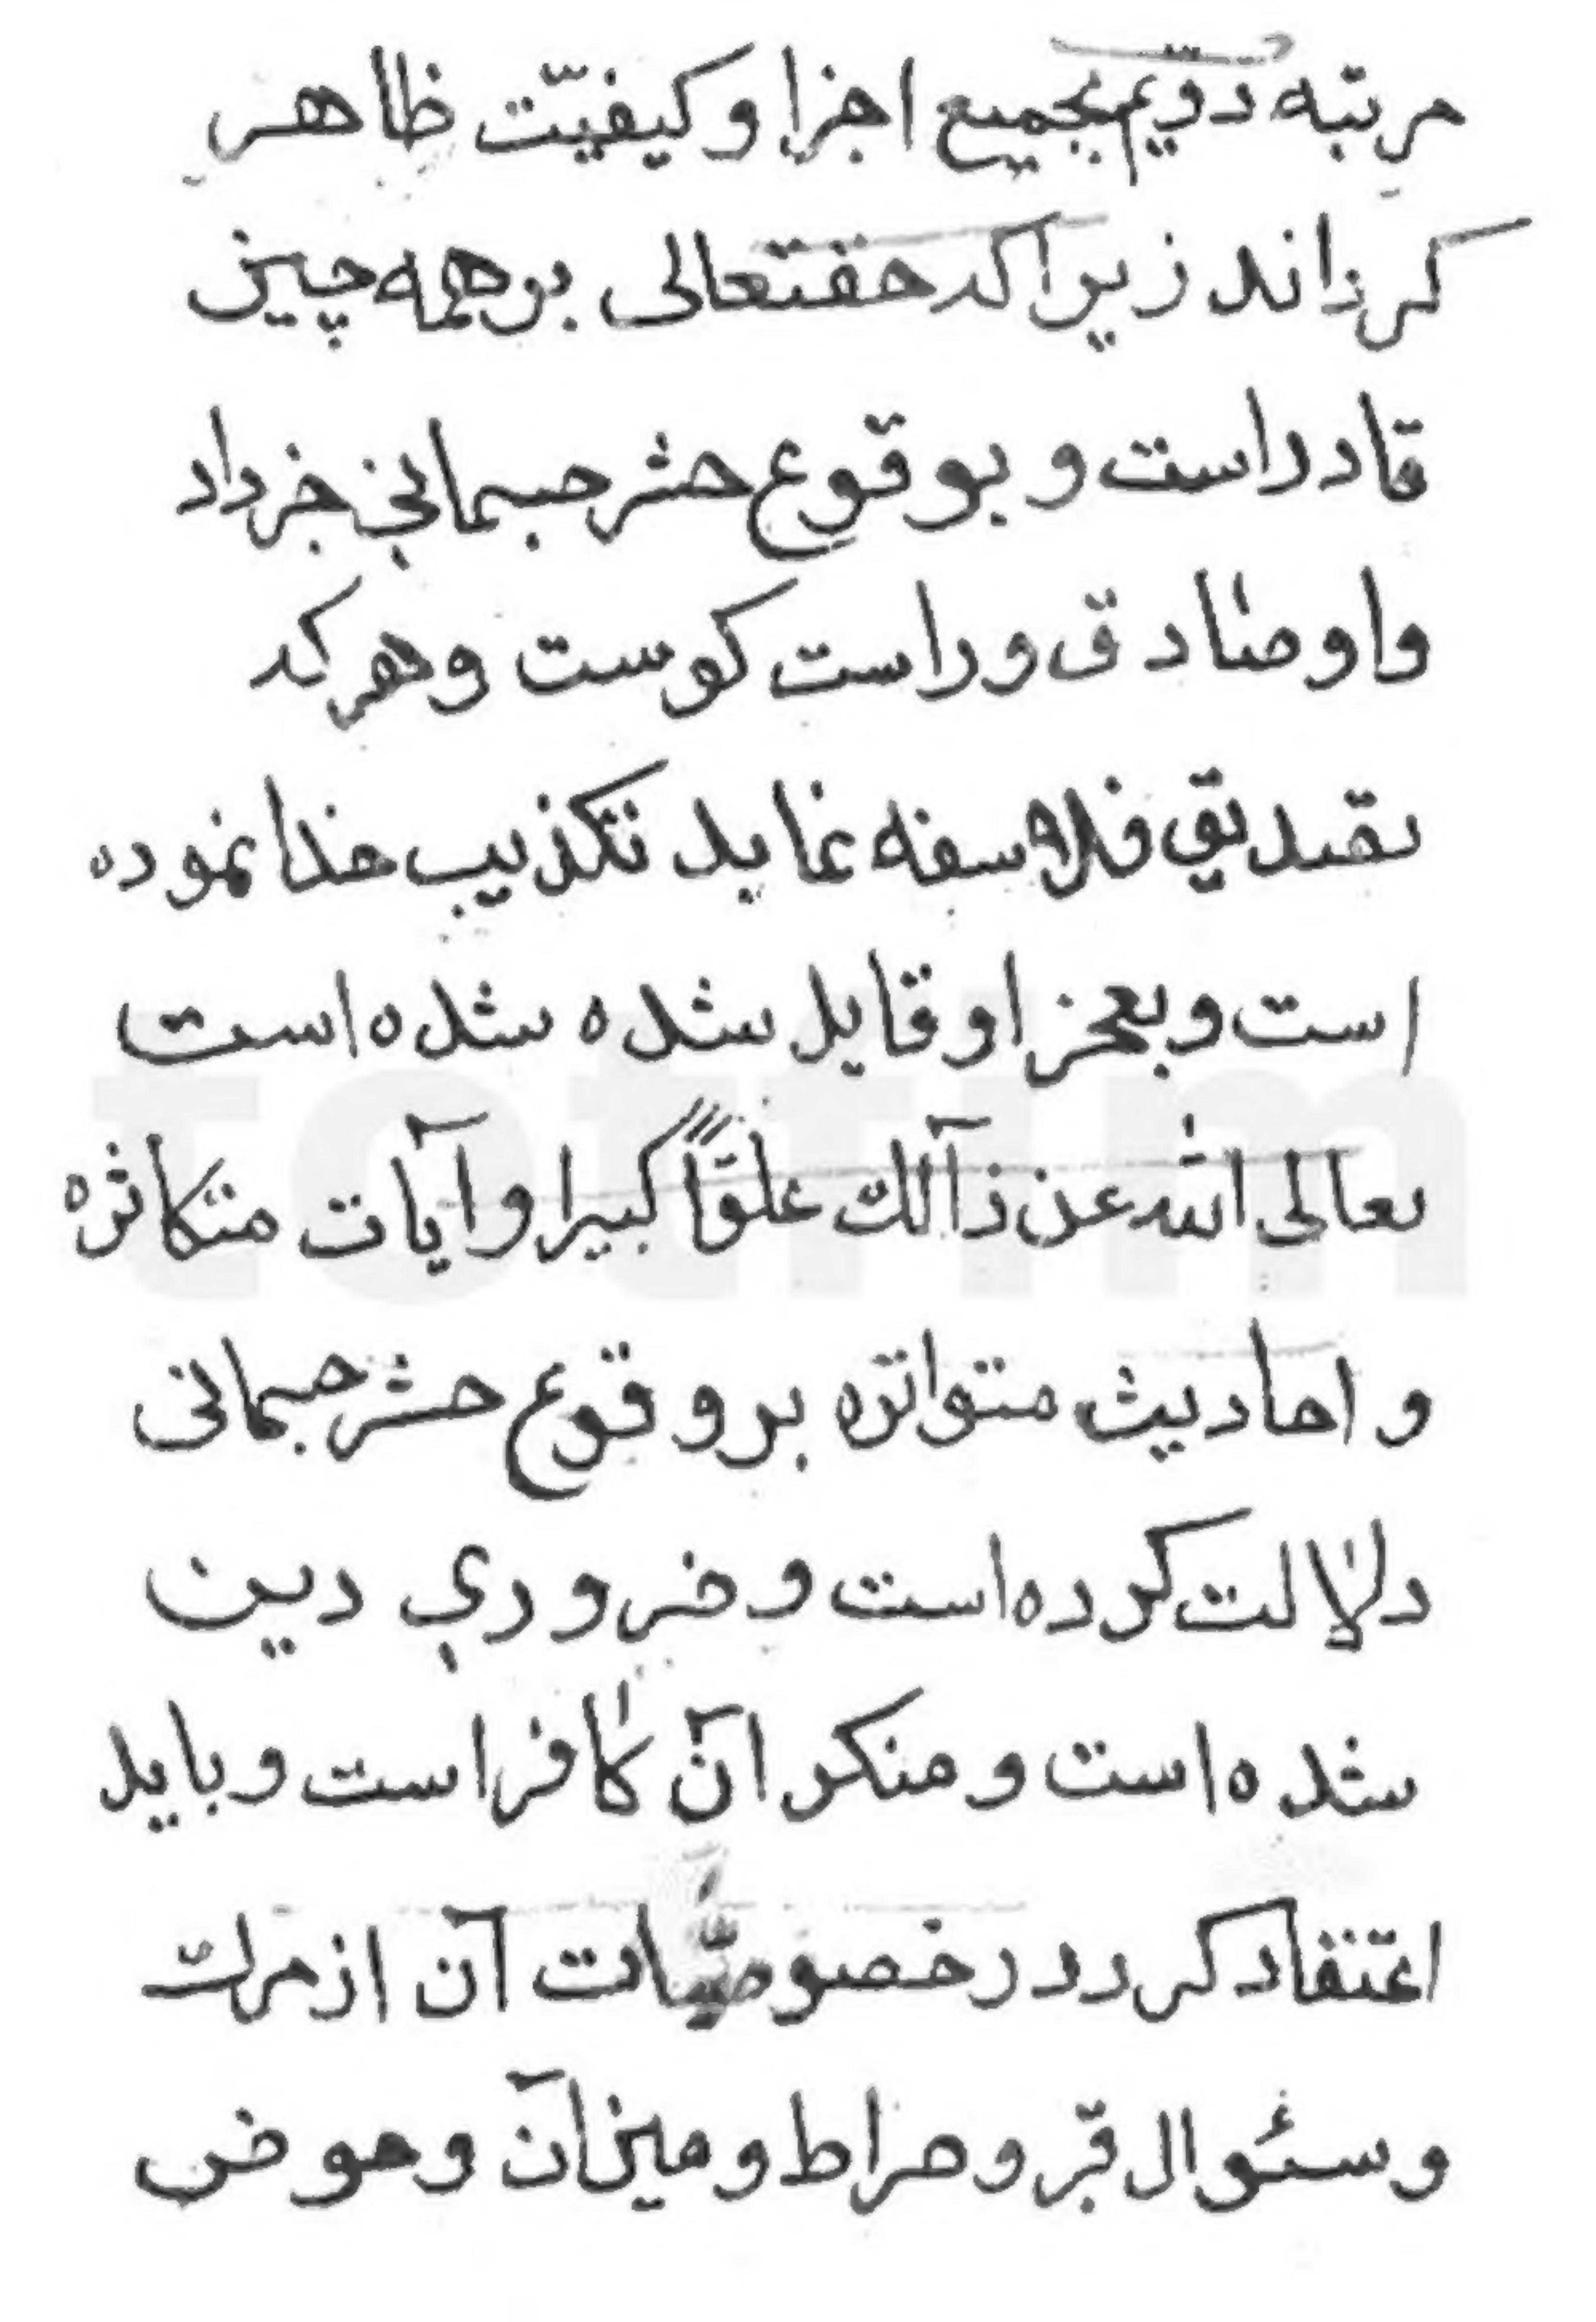 مرتبه دویّم بجمیع اجزا و کیفیّت ظاهر
کرداند زیرا که حقتعالی بر همه چیز
قادر است و بوقوع حشر جسمانی خبر داد
و او صادق و راست کوست و هر که
تصدیق فلاسفه نماید تکذیب خدا نموده
است و بعجز او قایل شده شده است
تعالی الله عن ذآلك علوّاً کبیرا و آیات متکاثره
و احادیث متواتره بر وقوع حشر جسمانی
دلالت کرده است و ضروری دین
شده است و منکر آن کافر است و باید
اعتقاد کرد در خصوصیّات آن از مرك
و سئوال قبر و صراط و میزآن و حوض
totfim